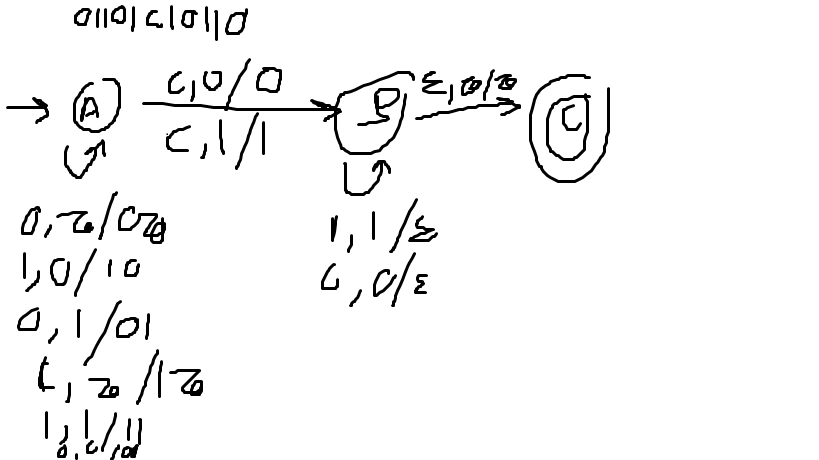 01101c10110
A
c,0/0
c,1/1
B
ε,z0/z0
C
0,z0/0z0
1,0/10
0,1/01
1,z0/1z0
1,1/11
0,0/00
1,1/ε
0,0/ε